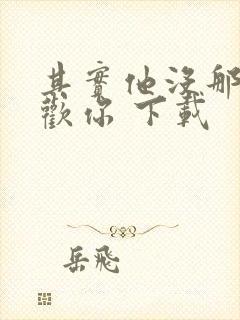 其實他沒那
歡你 下載
岳飛